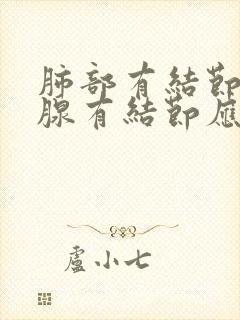 肺部有結節
腺有結節應
盧小七